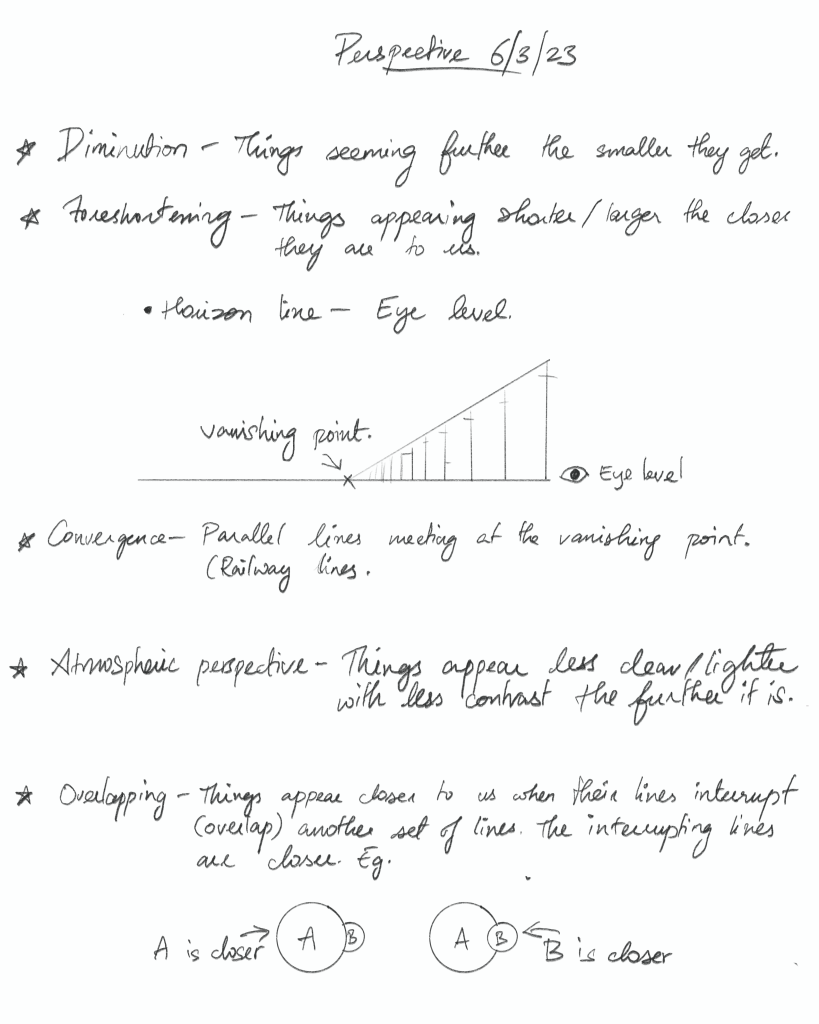 Perspective 6/3/23
* Diminution - Things seeming further the smaller they get.
* Foreshortening - Things appearing shorter/larger the closer
they are to us.
• Horizon line - Eye level.
vanishing point.
Eye level
* Convergence - Parallel lines meeting at the vanishing point.
(Railway lines.
* Atmospheric perspective - Things appear less clear/lighter
with less contrast the further if is.
* Overlapping - Things appear closer to us when their lines interrupt
(overlap) another set of lines. The interrupting lines
are closer. Eg.
A is closer → A B A B ← B is closer